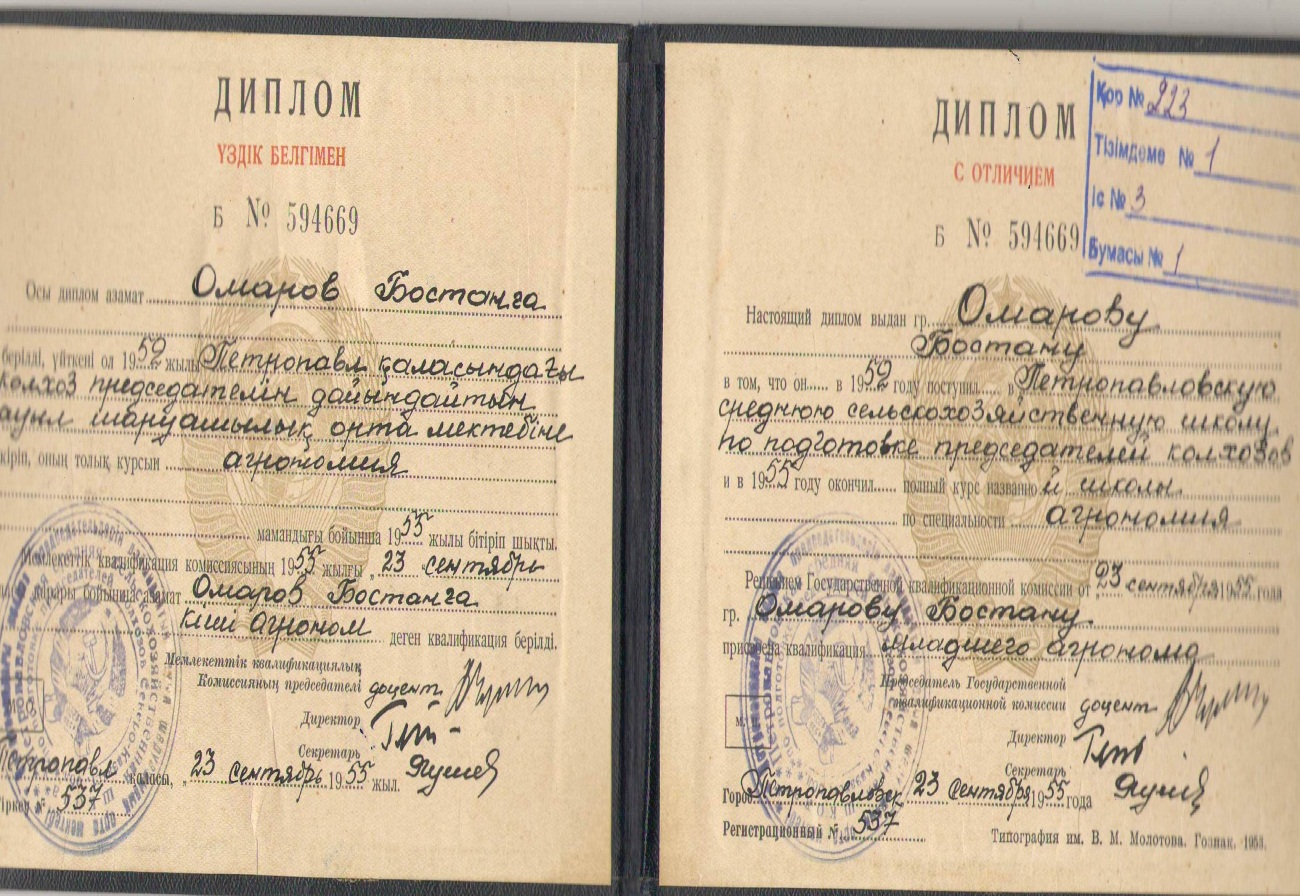 ДИПЛОМ
ҮЗДІК БЕЛГІМЕН
Б № 594669
Осы диплом азамат Омаров Бостанга
берілді, үйткені ол 1952 жылы Петропавл қаласындағы
колхоз председателін дайындайтын
ауыл шаруашылық орта мектебіне
кіріп, оның толық курсын агрономия
мамандығы бойынша 1955 жылы бітіріп шықты.
Мемлекеттік квалификация комиссиясының 1955 жылғы „23 сентябрь
қарары бойынша азамат Омаров Бостанга
кіші агроном деген квалификация берілді.
Мемлекеттік квалификациялық
Комиссияның председателі доцент
Директор
Секретарь
Петропавл қаласы, „23 сентябрь 1955 жыл.
Тіркеу № 537
ДИПЛОМ
С ОТЛИЧИЕМ
Б № 594669
Қор № 223
Тізімдеме № 1
Іс № 3
Бумасы № 1
Настоящий диплом выдан гр. Омарову
Бостану
в том, что он в 1952 году поступил в Петропавловскую
среднюю сельскохозяйственную школу
по подготовке председателей колхозов
и в 1955 году окончил полный курс названной школы
по специальности агрономия
Решением Государственной квалификационной комиссии от 23 сентября 1955 года
гр. Омарову Бостану
присвоена квалификация младшего агронома
Председатель Государственной
квалификационной комиссии доцент
Директор
Секретарь
Город Петропавловск 23 сентября 1955 года
Регистрационный № 537
Типография им. В. М. Молотова. Гознак. 1953.